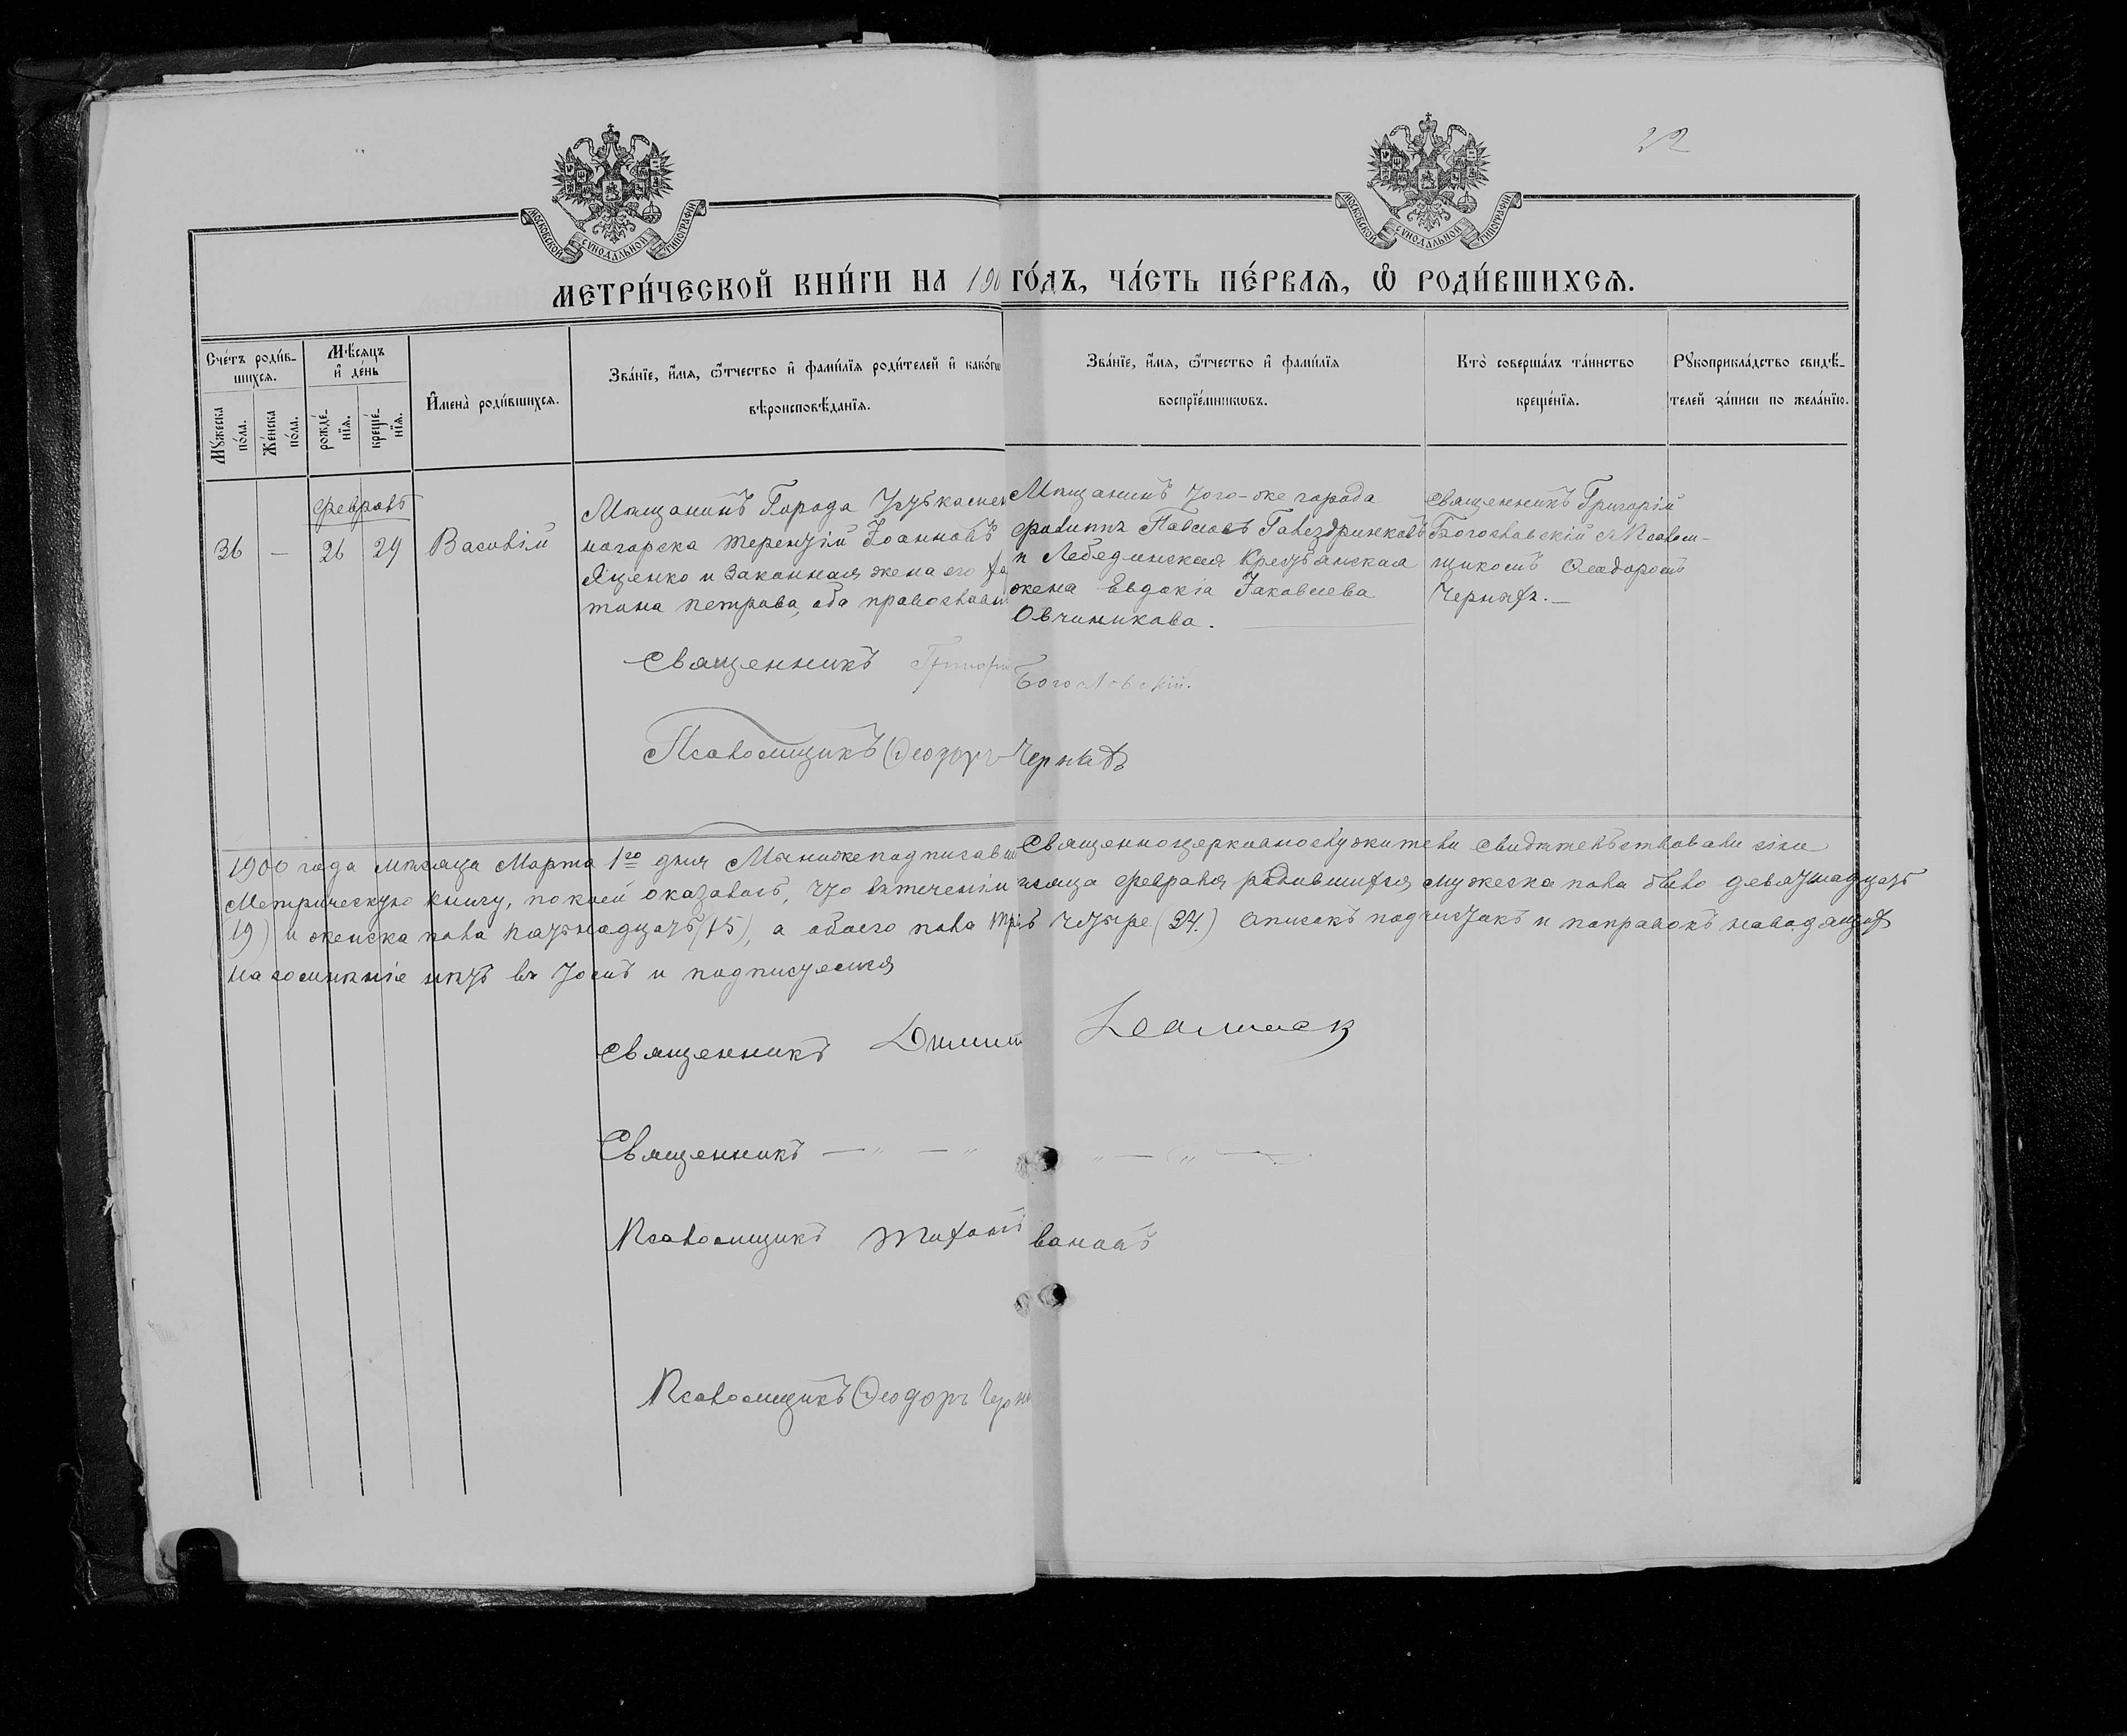 22
МОСКОВСКОЙ СѴНОДАЛЬНОЙ ТИПОГРАФІИ
МОСКОВСКОЙ СѴНОДАЛЬНОЙ ТИПОГРАФІИ
МЕТРИ́ЧЕСКОЙ КНИ́ГИ НА 190 ГО́ДЪ, ЧА́СТЬ ПЕ́РВАѦ, Ѽ РОДИ́ВШИХСѦ.
Сче́тъ роди́в-
шихсѧ.
Мꙋ́жеска
по́ла.
Же́нска
по́ла.
Мѣ́сѧцъ
и҆ де́нь
рожде́-
нїѧ.
креще́-
нїѧ.
И҆мена̀ роди́вшихсѧ.
Зва́нїе, и҆́мѧ, ѻ҆́тчество и҆ фами́лїѧ роди́телей и҆ како́гѡ
вѣроисповѣ́данїѧ.
Зва́нїе, и҆́мѧ, ѻ҆́тчество и҆ фами́лїѧ
воспрїе́мникѡвъ.
Кто̀ соверша́лъ та́инство
креще́нїѧ.
Рꙋкоприкла́дство свидѣ́-
телей за́писи по жела́нїю.
Февраль
36 — 26 29 Василій
Мѣщанинъ Города
ногорска Терентій Іоанновъ
Яценко и законная жена его
тіана Петрова, оба православн
Мѣщанинъ того-же города
Филиппъ Павловъ
и Лебединская Крестьянская
жена Евдокія Іаковлева
Овчиникова.
Священникъ Григорій
Богословскій съ Псалом-
щикомъ Ѳеодоромъ
Чернях.—
Священникъ Григорій Богословскій.
Псаломщикъ Ѳеодоръ
1900 года мѣсяца Марта 1го дня Мы нижеподписавш Священноцерковнослужители свидѣтельствовали сію
Метрическую книгу, по коей оказалось, что втеченіи мѣсяца Февраля родившихся мужеска пола было девятнадцать
(19) и женска пола пятьнадцать (15), а обоего пола три четыре (34.) Описокъ подчистокъ и поправокъ наводящихъ
на сомнѣніе нѣтъ въ томъ и подписуемся
Священникъ
Священникъ — " — " " — " —
Псаломщикъ
Псаломщикъ Ѳеодоръ